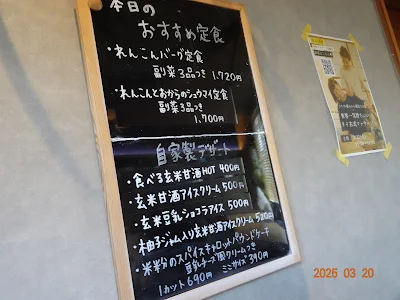 本日の
おすすめ定食
・れんこんバーグ定食
副菜3品つき 1,720円
・れんこんとおからのシュウマイ定食
副菜3品つき
1,700円
自家製デザート
・食べる玄米甘酒HOT 400円
・玄米甘酒アイスクリーム 500円
・玄米豆乳ショコラアイス 500円
・柚子ジャム入り玄米甘酒アイスクリーム 520円
・米粉のスパイスキャロットパウンドケーキ
豆乳チーズ風クリームつき
1カット690円 ミニサイズ390円
2025 03 20